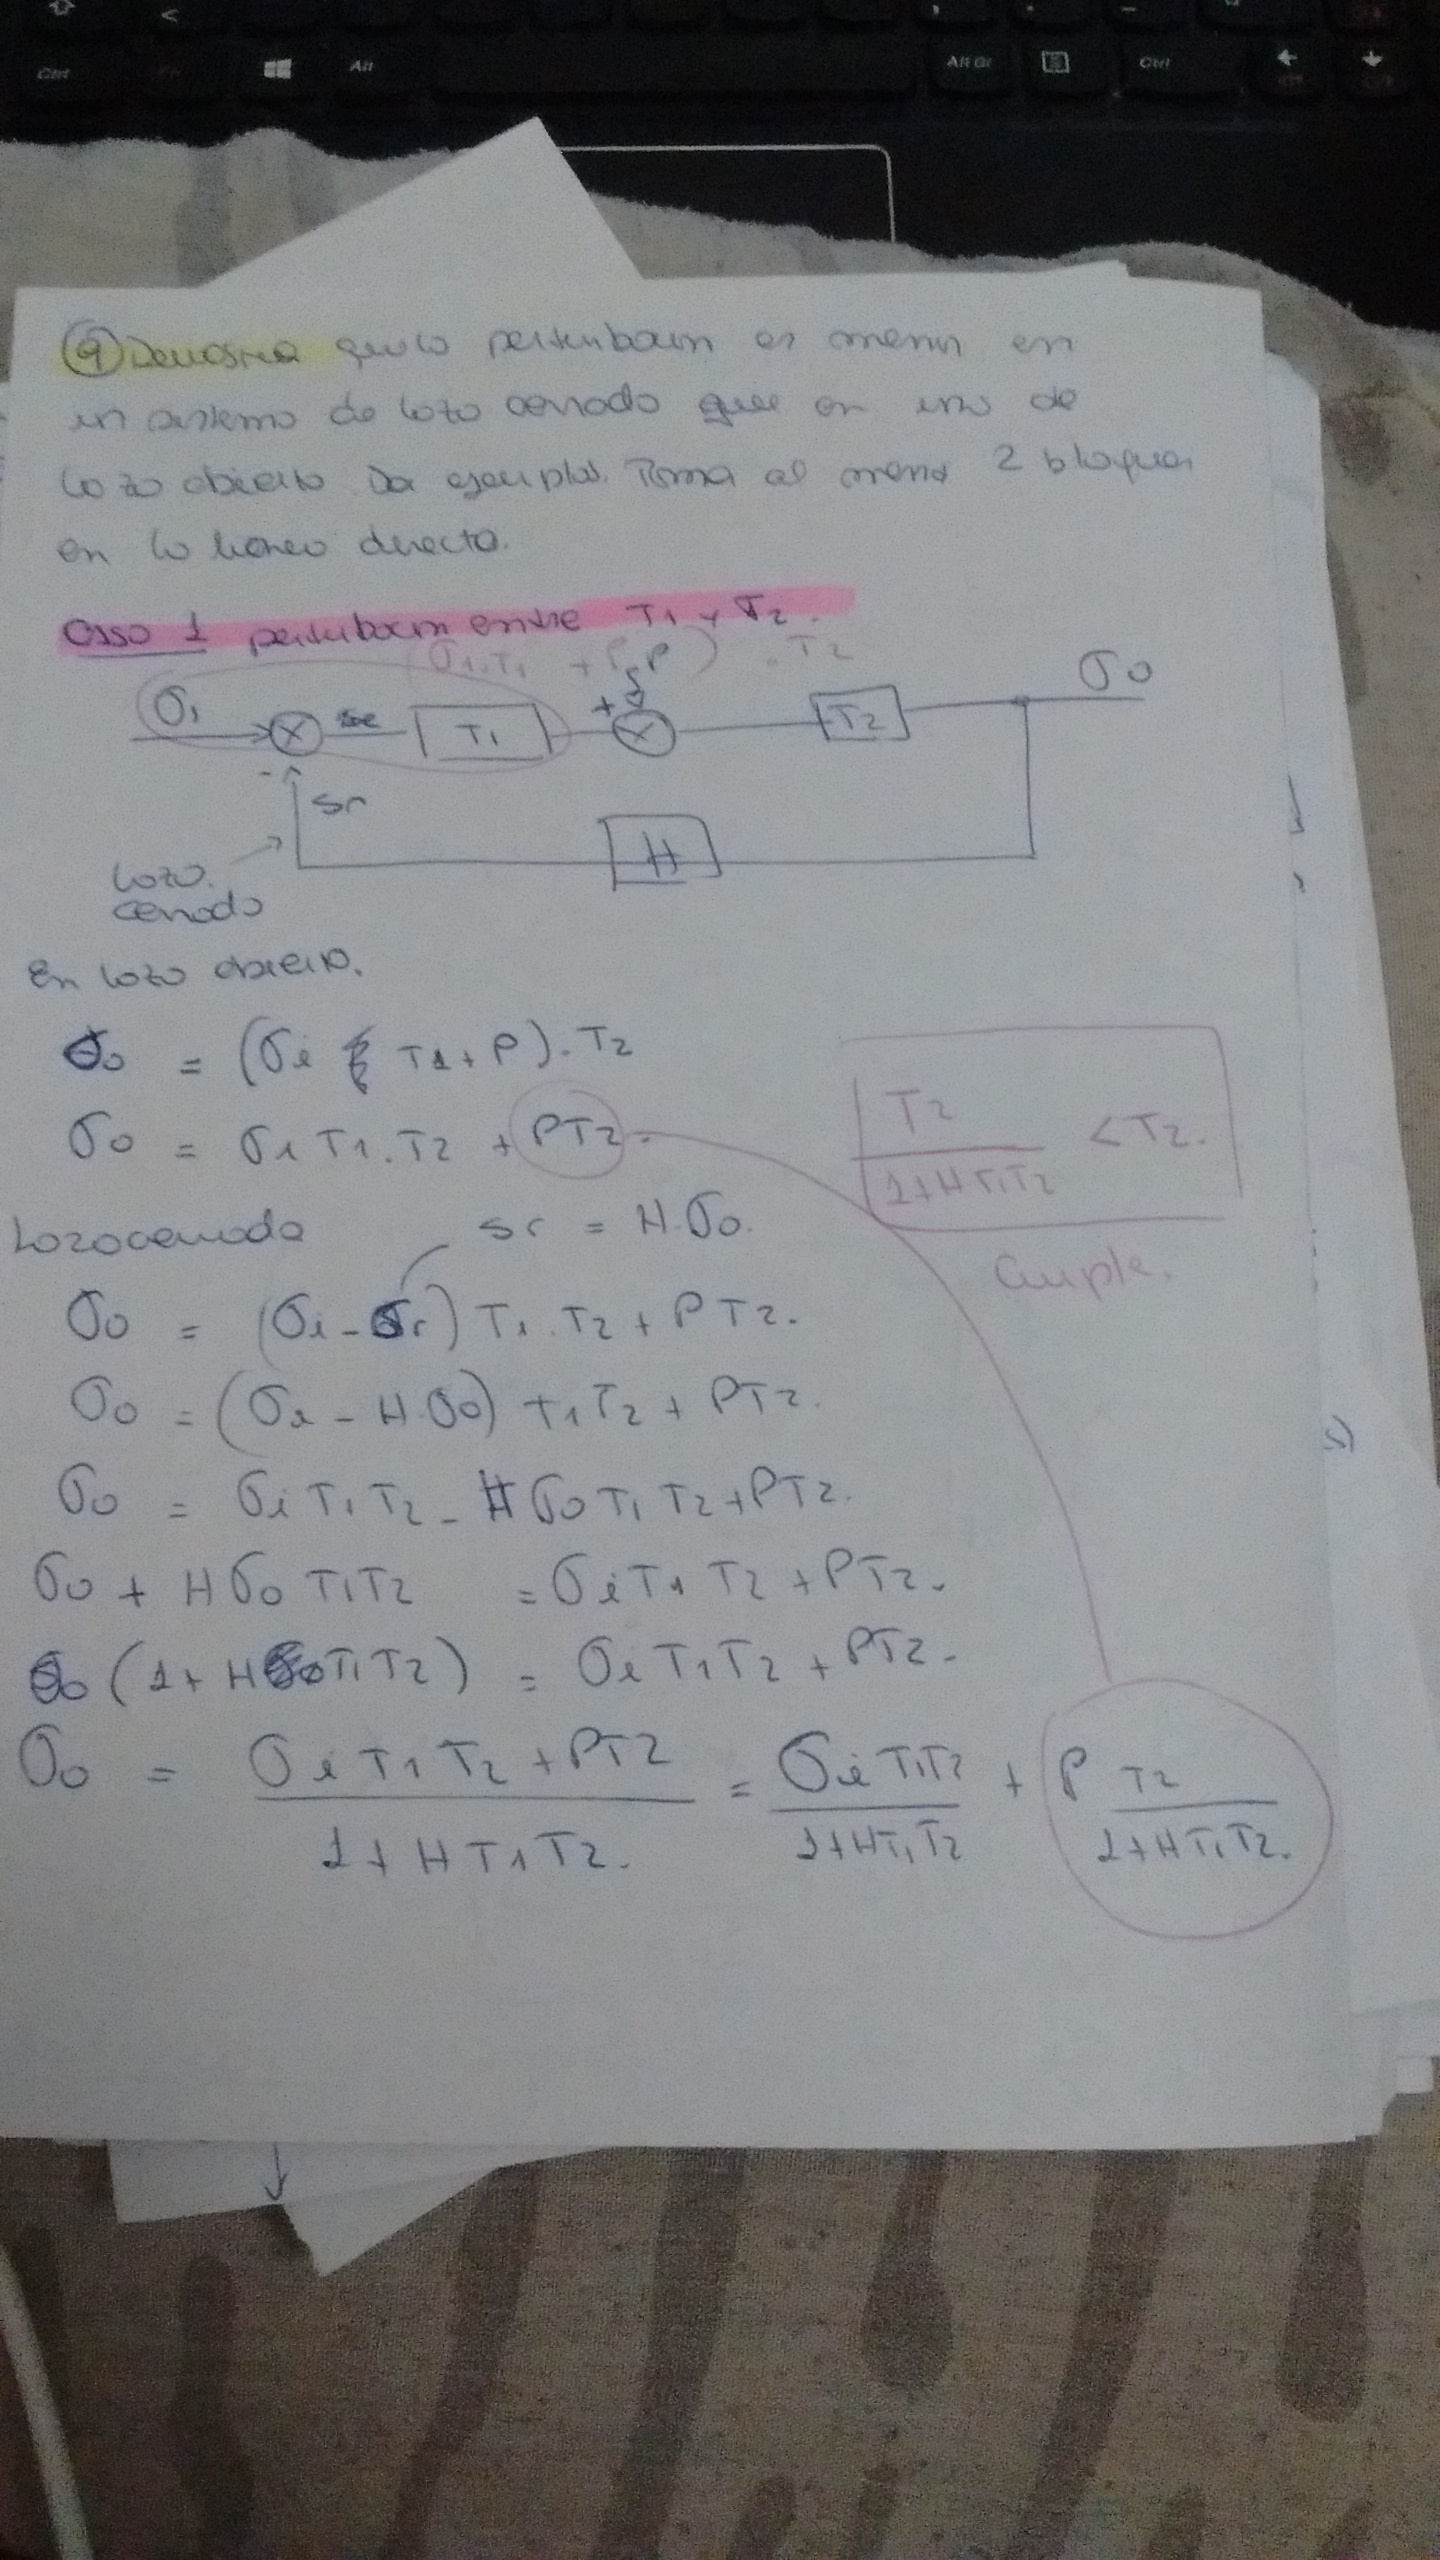 Ctrl
<
Alt
Alt Gr
Ctrl
9 Demostrar que la perturbacion es menor en
un sistema de lazo cerrado que en uno de
lazo abierto. Da ejemplos. Toma al menos 2 bloques
en la linea directa.
Caso 1 perturbacion entre T1 y T2.
(σ1.T1 + P) .T2
σi
se
T1
+
P
T2
σo
-
sr
H
lazo.
cerrado
En lazo abierto.
σo = (σi T1 + P). T2
σo = σi T1. T2 + PT2.
T2 / 1+HT1T2 < T2.
Cumple.
Lazo cerrado sr = H.σo.
σo = (σi - σr) T1. T2 + PT2.
σo = (σi - H.σo) T1T2 + PT2.
σo = σi T1 T2 - H σo T1 T2 + PT2.
σo + H σo T1T2 = σi T1 T2 + PT2.
σo (1 + H T1 T2) = σi T1T2 + PT2.
σo = σi T1 T2 + PT2 / 1 + H T1 T2. = σi T1T2 / 1+HT1T2 + P T2 / 1+HT1T2.